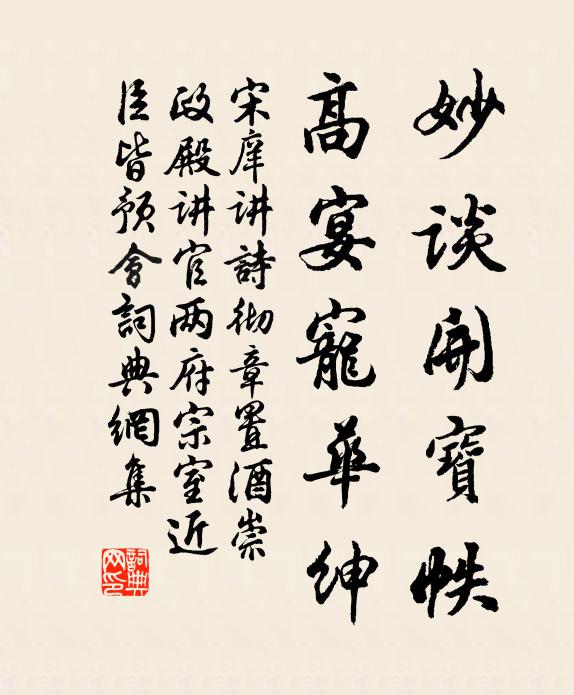 妙谈開寶帙
高宴寵華紳
宋庠讲詩彻章置酒崇
政殿讲官两府宗室近
臣皆预會詞典網集
詞典网印